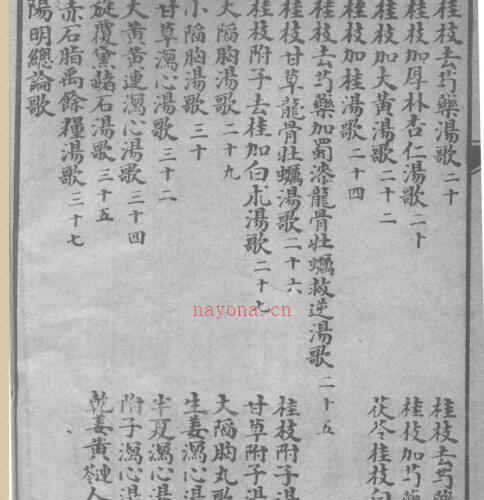 桂枝去芍藥湯歌二十
桂枝去芍藥
桂枝加厚朴杏仁湯歌二十
桂枝加芍藥
桂枝加大黃湯歌二十二
茯苓桂枝白
桂枝加桂湯歌二十四
桂枝去芍藥加蜀漆龍骨牡蠣救逆湯歌二十五
桂枝甘草龍骨牡蠣湯歌二十六
桂枝附子湯
桂枝附子去桂加白朮湯歌二十七
甘草附子湯
大陷胸湯歌二十九
大陷胸丸歌
小陷胸湯歌三十
生姜瀉心湯
甘草瀉心湯歌三十二
半夏瀉心湯
大黃黃連瀉心湯歌三十四
附子瀉心湯
旋覆黛赭石湯歌三十五
乾姜黃連芩人
赤石脂禹餘糧湯歌三十七
陽明總論歌
nayona.cn